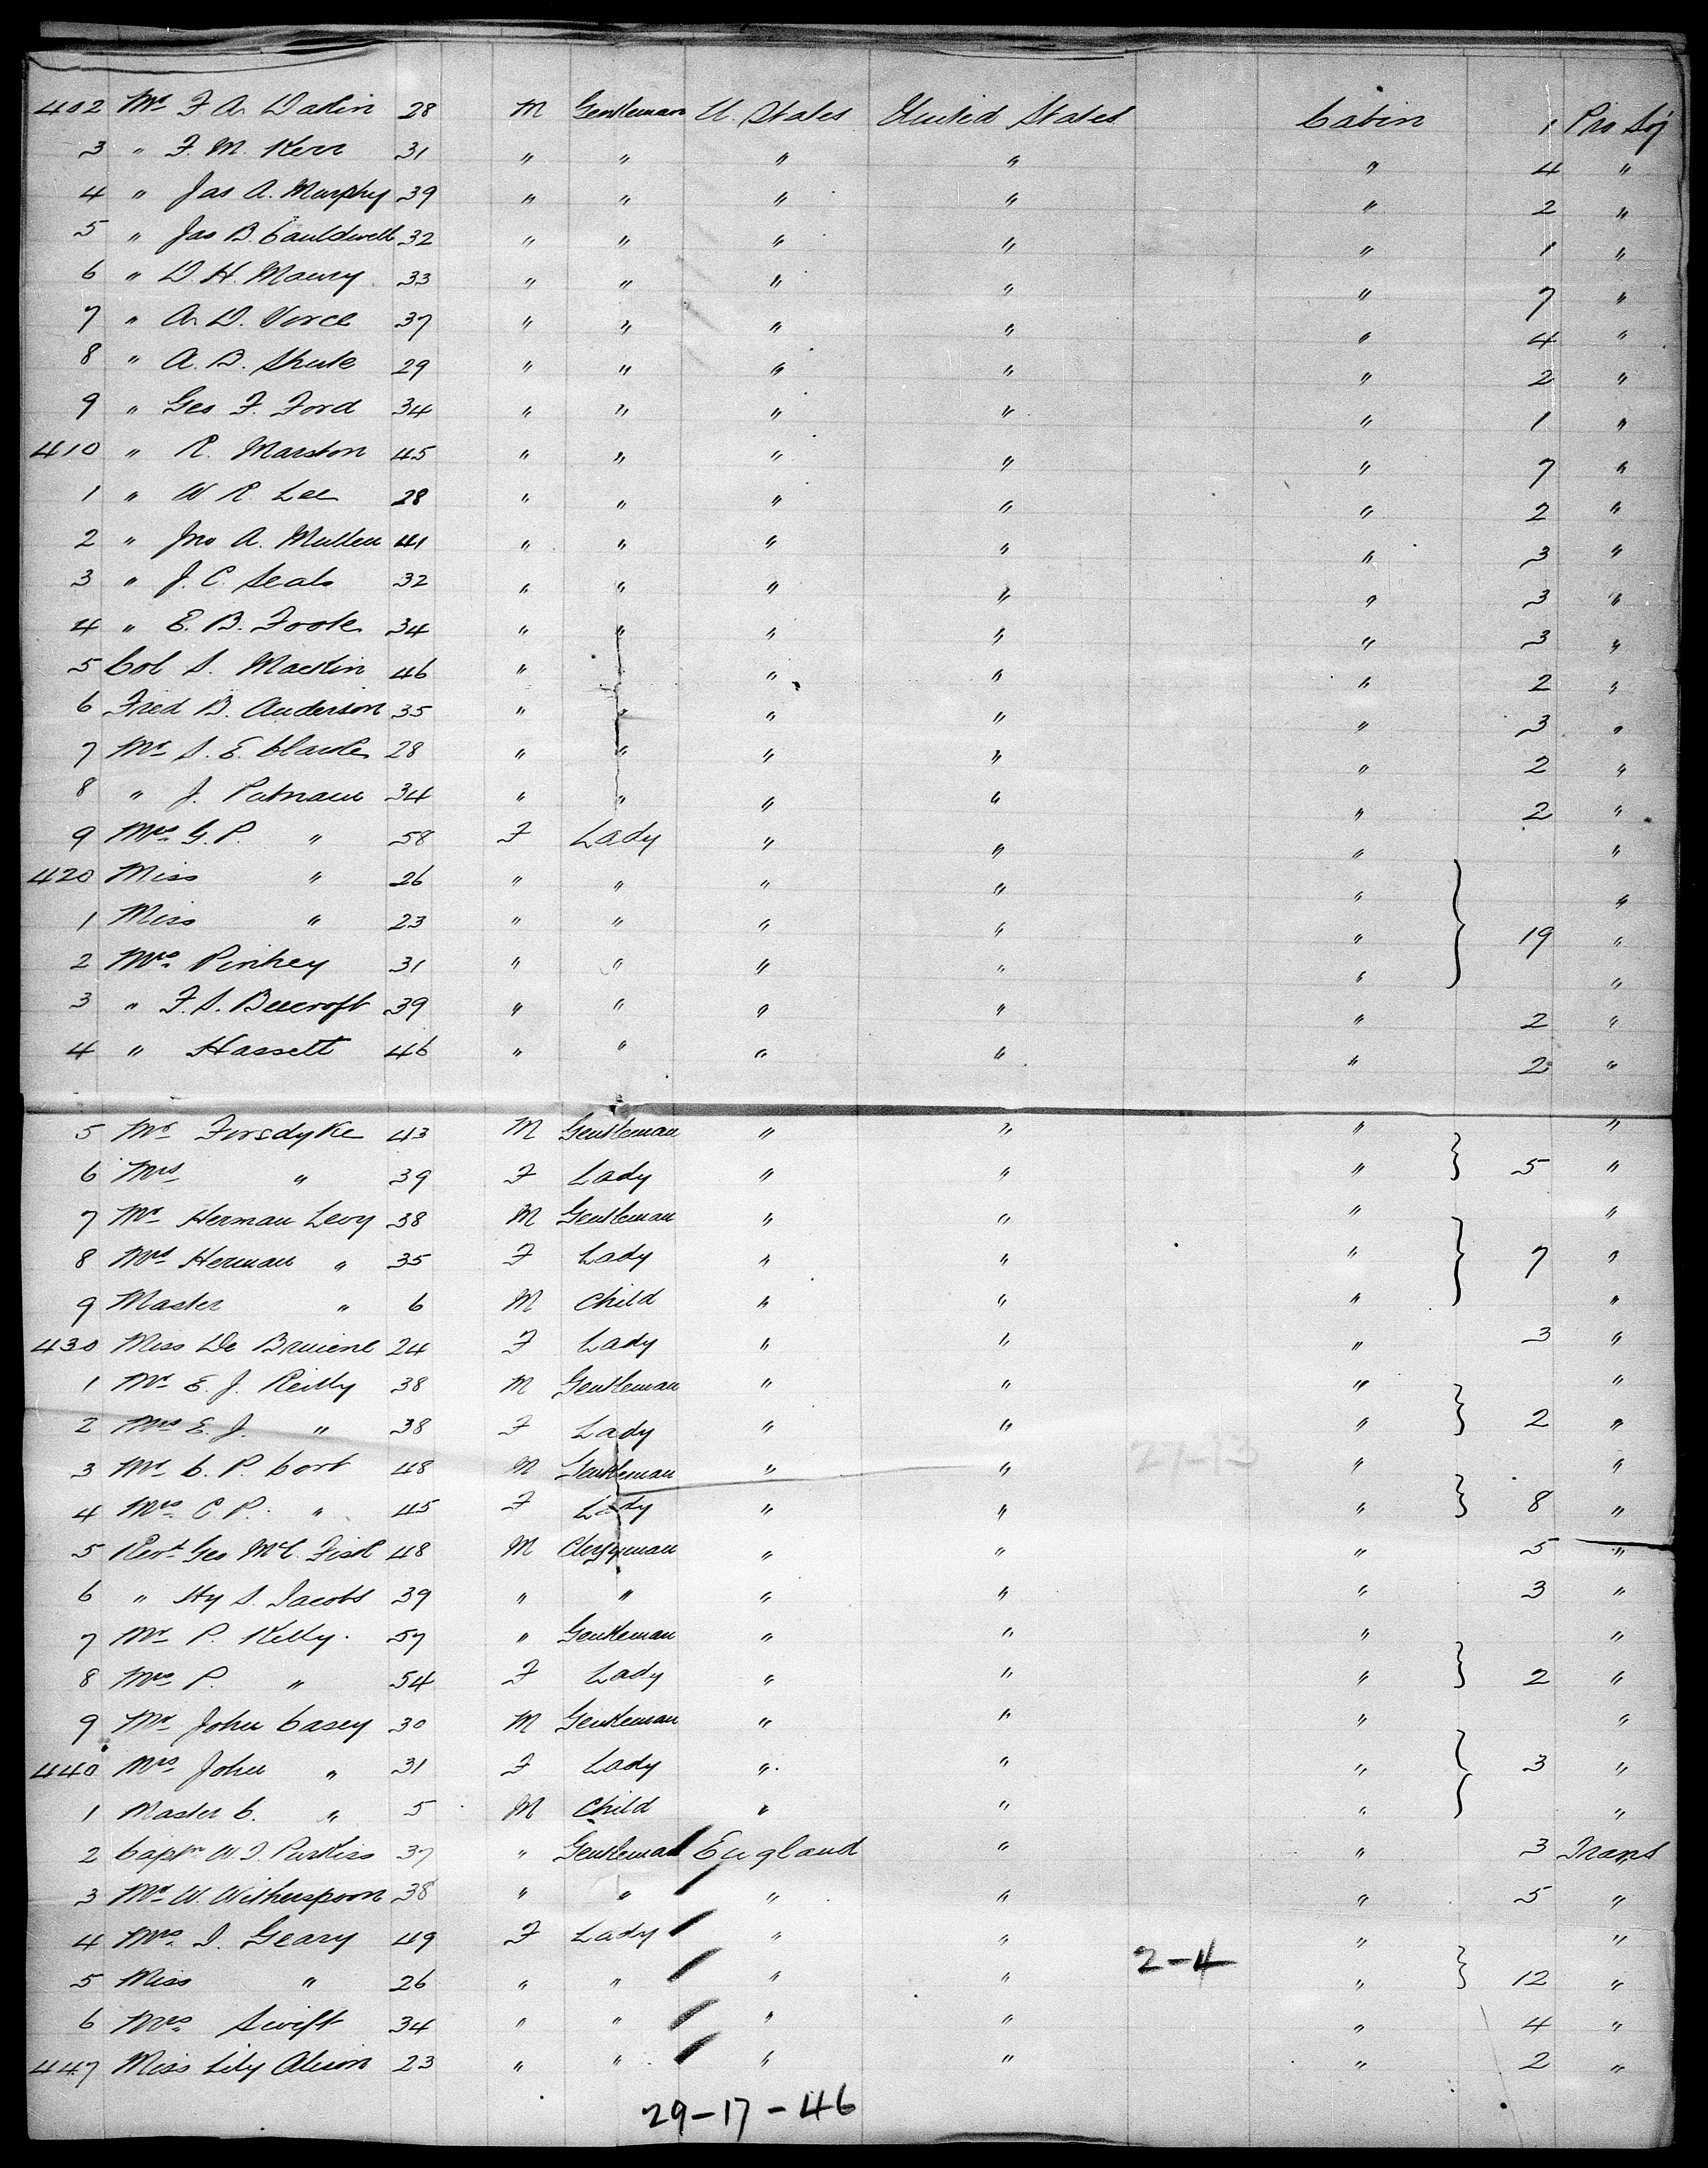 402 Mr F. A. Dakin 28 M Gentleman U. States United States Cabin 1 Pro Soj
3 " F. M. Kerr 31 " " " " " 4 "
4 " Jas A. Murphy 39 " " " " " 2 "
5 " Jas B. Cauldwell 32 " " " " " 1 "
6 " D. H. Maury 33 " " " " " 7 "
7 " A. D. Vorce 37 " " " " " 4 "
8 " A. B. Shute 29 " " " " " 2 "
9 " Geo F. Ford 34 " " " " " 1 "
410 " R. Marston 45 " " " " " 7 "
1 " W R. Lee 28 " " " " " 2 "
2 " Jno A. Mullen 41 " " " " " 3 "
3 " J. C. Seals 32 " " " " " 3 "
4 " E. B. Foote 34 " " " " " 3 "
5 Col S. Mackin 46 " " " " 2 "
6 Fred B. Anderson 35 " " " " " 3 "
7 Mr S. E. Clarke 28 " " " " " 2 "
8 " J. Putnam 34 " " " " " 2 "
9 Mrs G. P. " 58 F Lady " " " "
420 Miss " 26 " " " " " "
1 Miss " 23 " " " " " 19 "
2 Mrs Pinkey 31 " " " " " "
3 " F. S. Beecroft 39 " " " " " 2 "
4 " Hassett 46 " " " " " 2 "
5 Mr Forsdyke 43 M Gentleman " " " "
6 Mrs " 39 F Lady " " " 5 "
7 Mr Herman Levy 38 M Gentleman " " " "
8 Mrs Herman " 35 F Lady " " " 7 "
9 Master " 6 M Child " " " "
430 Miss De Bruiene 24 F Lady " " " 3 "
1 Mr E. J. Reilly 38 M Gentleman " " " "
2 Mrs E. J. " 38 F Lady " " " 2 "
3 Mr C. P. Cort 48 M Gentleman " " 27-13 " "
4 Mrs C P. " 45 F Lady " " " 8 "
5 Revd Geo McC. Fisk 48 M Clergyman " " " 5 "
6 " Hy S. Jacobs 39 " " " " " 3 "
7 Mr P. Kelly. 57 " Gentleman " " " "
8 Mrs P. " 54 F Lady " " " 2 "
9 Mr John Casey 30 M Gentleman " " " "
440 Mrs John " 31 F Lady " " " 3 "
1 Master C. " 5 M Child " " " "
2 Captn W. J. Purkiss 37 " Gentleman England " " 3 Trans
3 Mr W. Witherspoon 38 " " " " " 5 "
4 Mrs J. Geary 49 F Lady " " " "
5 Miss " 26 " " " " 2-4 " 12 "
6 Mrs Swift 34 " " " " " 4 "
447 Miss Lily 23 " " " " " 2 "
29-17-46